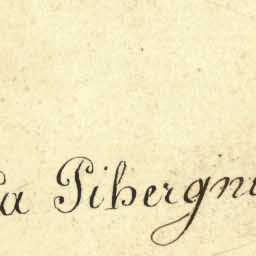 La Pibergni